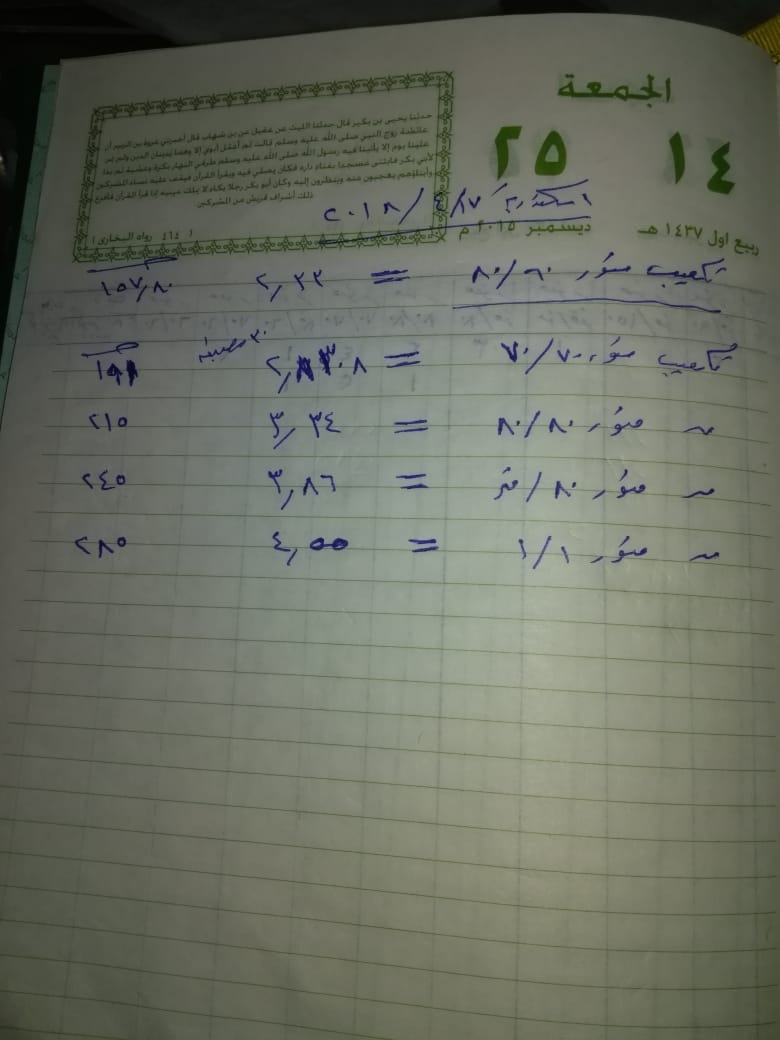 الجمعة
١٤
٢٥
ربيع اول ١٤٣٧ هـ
ديسمبر ٢٠١٥ م
حدثنا يحيى بن بكير قال حدثنا الليث عن عقيل عن بن شهاب قال أخبرني عروة بن الزبير أن
عائشة زوج النبي صلى الله عليه وسلم قالت لم أعقل أبوي إلا وهما يدينان الدين ولم يمر
علينا يوم إلا يأتينا فيه رسول الله صلى الله عليه وسلم طرفي النهار بكرة وعشية ثم بدا
لأبي بكر فابتنى مسجدا بفناء داره فكان يصلي فيه ويقرأ القرآن فيقف عليه نساء المشركين
وأبناؤهم يعجبون منه وينظرون إليه وكان أبو بكر رجلا بكاء لا يملك عينيه إذا قرأ القرآن فأفزع
ذلك أشراف قريش من المشركين
( ٤٦٤ رواه البخارى )
اسكندرية ١٧/٤/٢٠١٨
تكعيب ٨٠/٦٠ = ٢,٢٢ ١٥٧,٨٠
تكعيب ٧٠/٧٠ = ٣٠
٨٠/٨٠ = ٣,٣٤ ٢١٥
٨٠/متر = ٣,٨٦ ٢٤٥
١/١ = ٤,٥٥ ٢٨٥